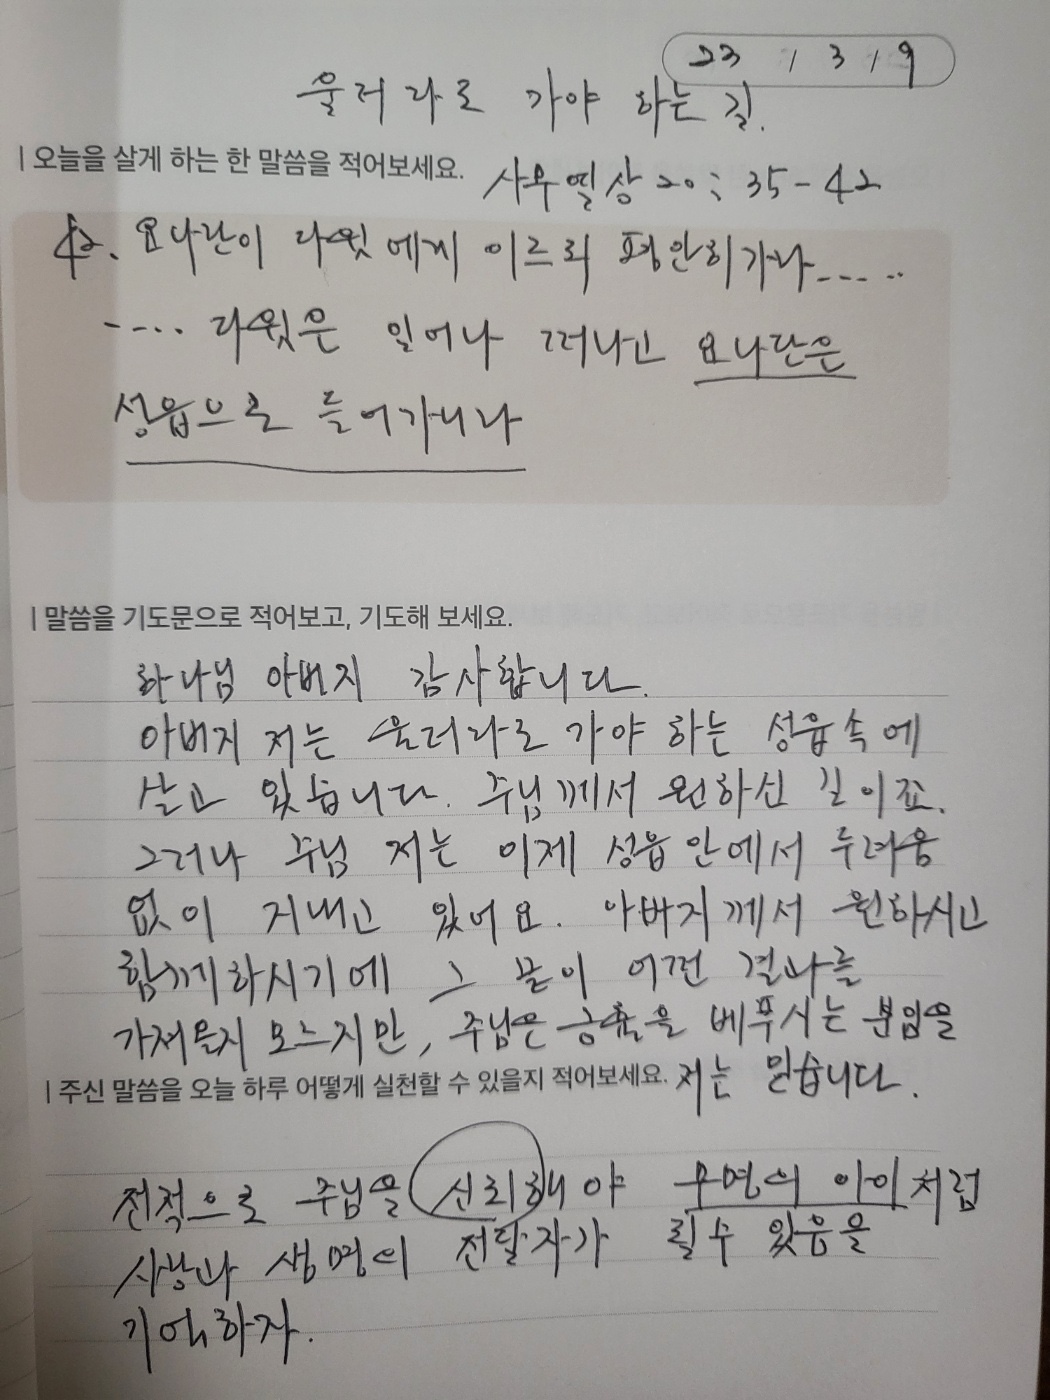 23 / 3 / 9
울더라도 가야 하는 길.
| 오늘을 살게 하는 한 말씀을 적어보세요.
사무엘상 20 : 35 - 42
42. 요나단이 다윗에게 이르되 평안히가라.....
.... 다윗은 일어나 떠나고 요나단은
성읍으로 들어가니라
| 말씀을 기도문으로 적어보고, 기도해 보세요.
하나님 아버지 감사합니다.
아버지 저는 울더라도 가야 하는 성읍속에
살고 있습니다. 주님께서 원하신 길이죠.
그러나 주님 저는 이제 성읍 안에서 두려움
없이 지내고 있어요. 아버지께서 원하시고
함께하시기에 그 끝이 어떤 결과를
가져올지 모르지만, 주님은 긍휼을 베푸시는 분임을
저는 믿습니다.
| 주신 말씀을 오늘 하루 어떻게 실천할 수 있을지 적어보세요.
전적으로 주님을 신뢰해야 무명의 아이처럼
사랑과 생명의 전달자가 될 수 있음을
기억하자.